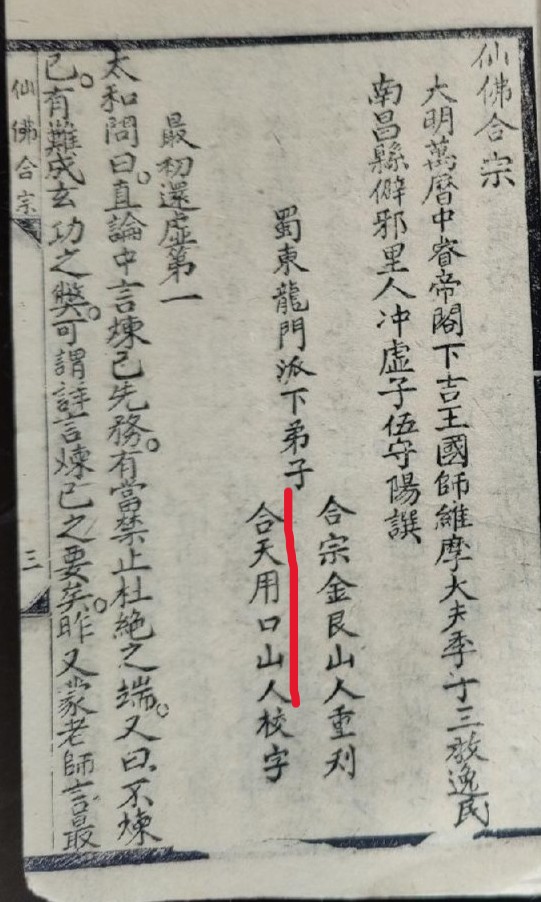 仙佛合宗
大明萬曆中睿帝閣下吉王國師維摩大夫季子三教逸民
南昌縣僻邪里人冲虛子伍守陽譔
蜀東龍門派下弟子
合宗金艮山人重刋
合天用口山人校字
最初還虛第一
太和問曰。直論中言煉己先務。有當禁止杜絶之端。又曰不煉
己。有難成玄功之獘。可謂詳言煉己之要矣。昨又蒙老師言最
仙佛合宗
三